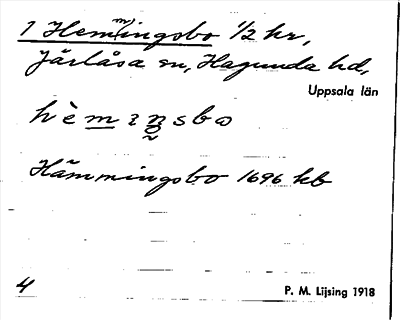 1 Hem(m)ingsbo 1/2 hr,
Järlåsa sn, Hagunda hd,
Uppsala län
hèmıŋsbω
Hämmingsbo 1696 kb
4
P. M. Lijsing 1918